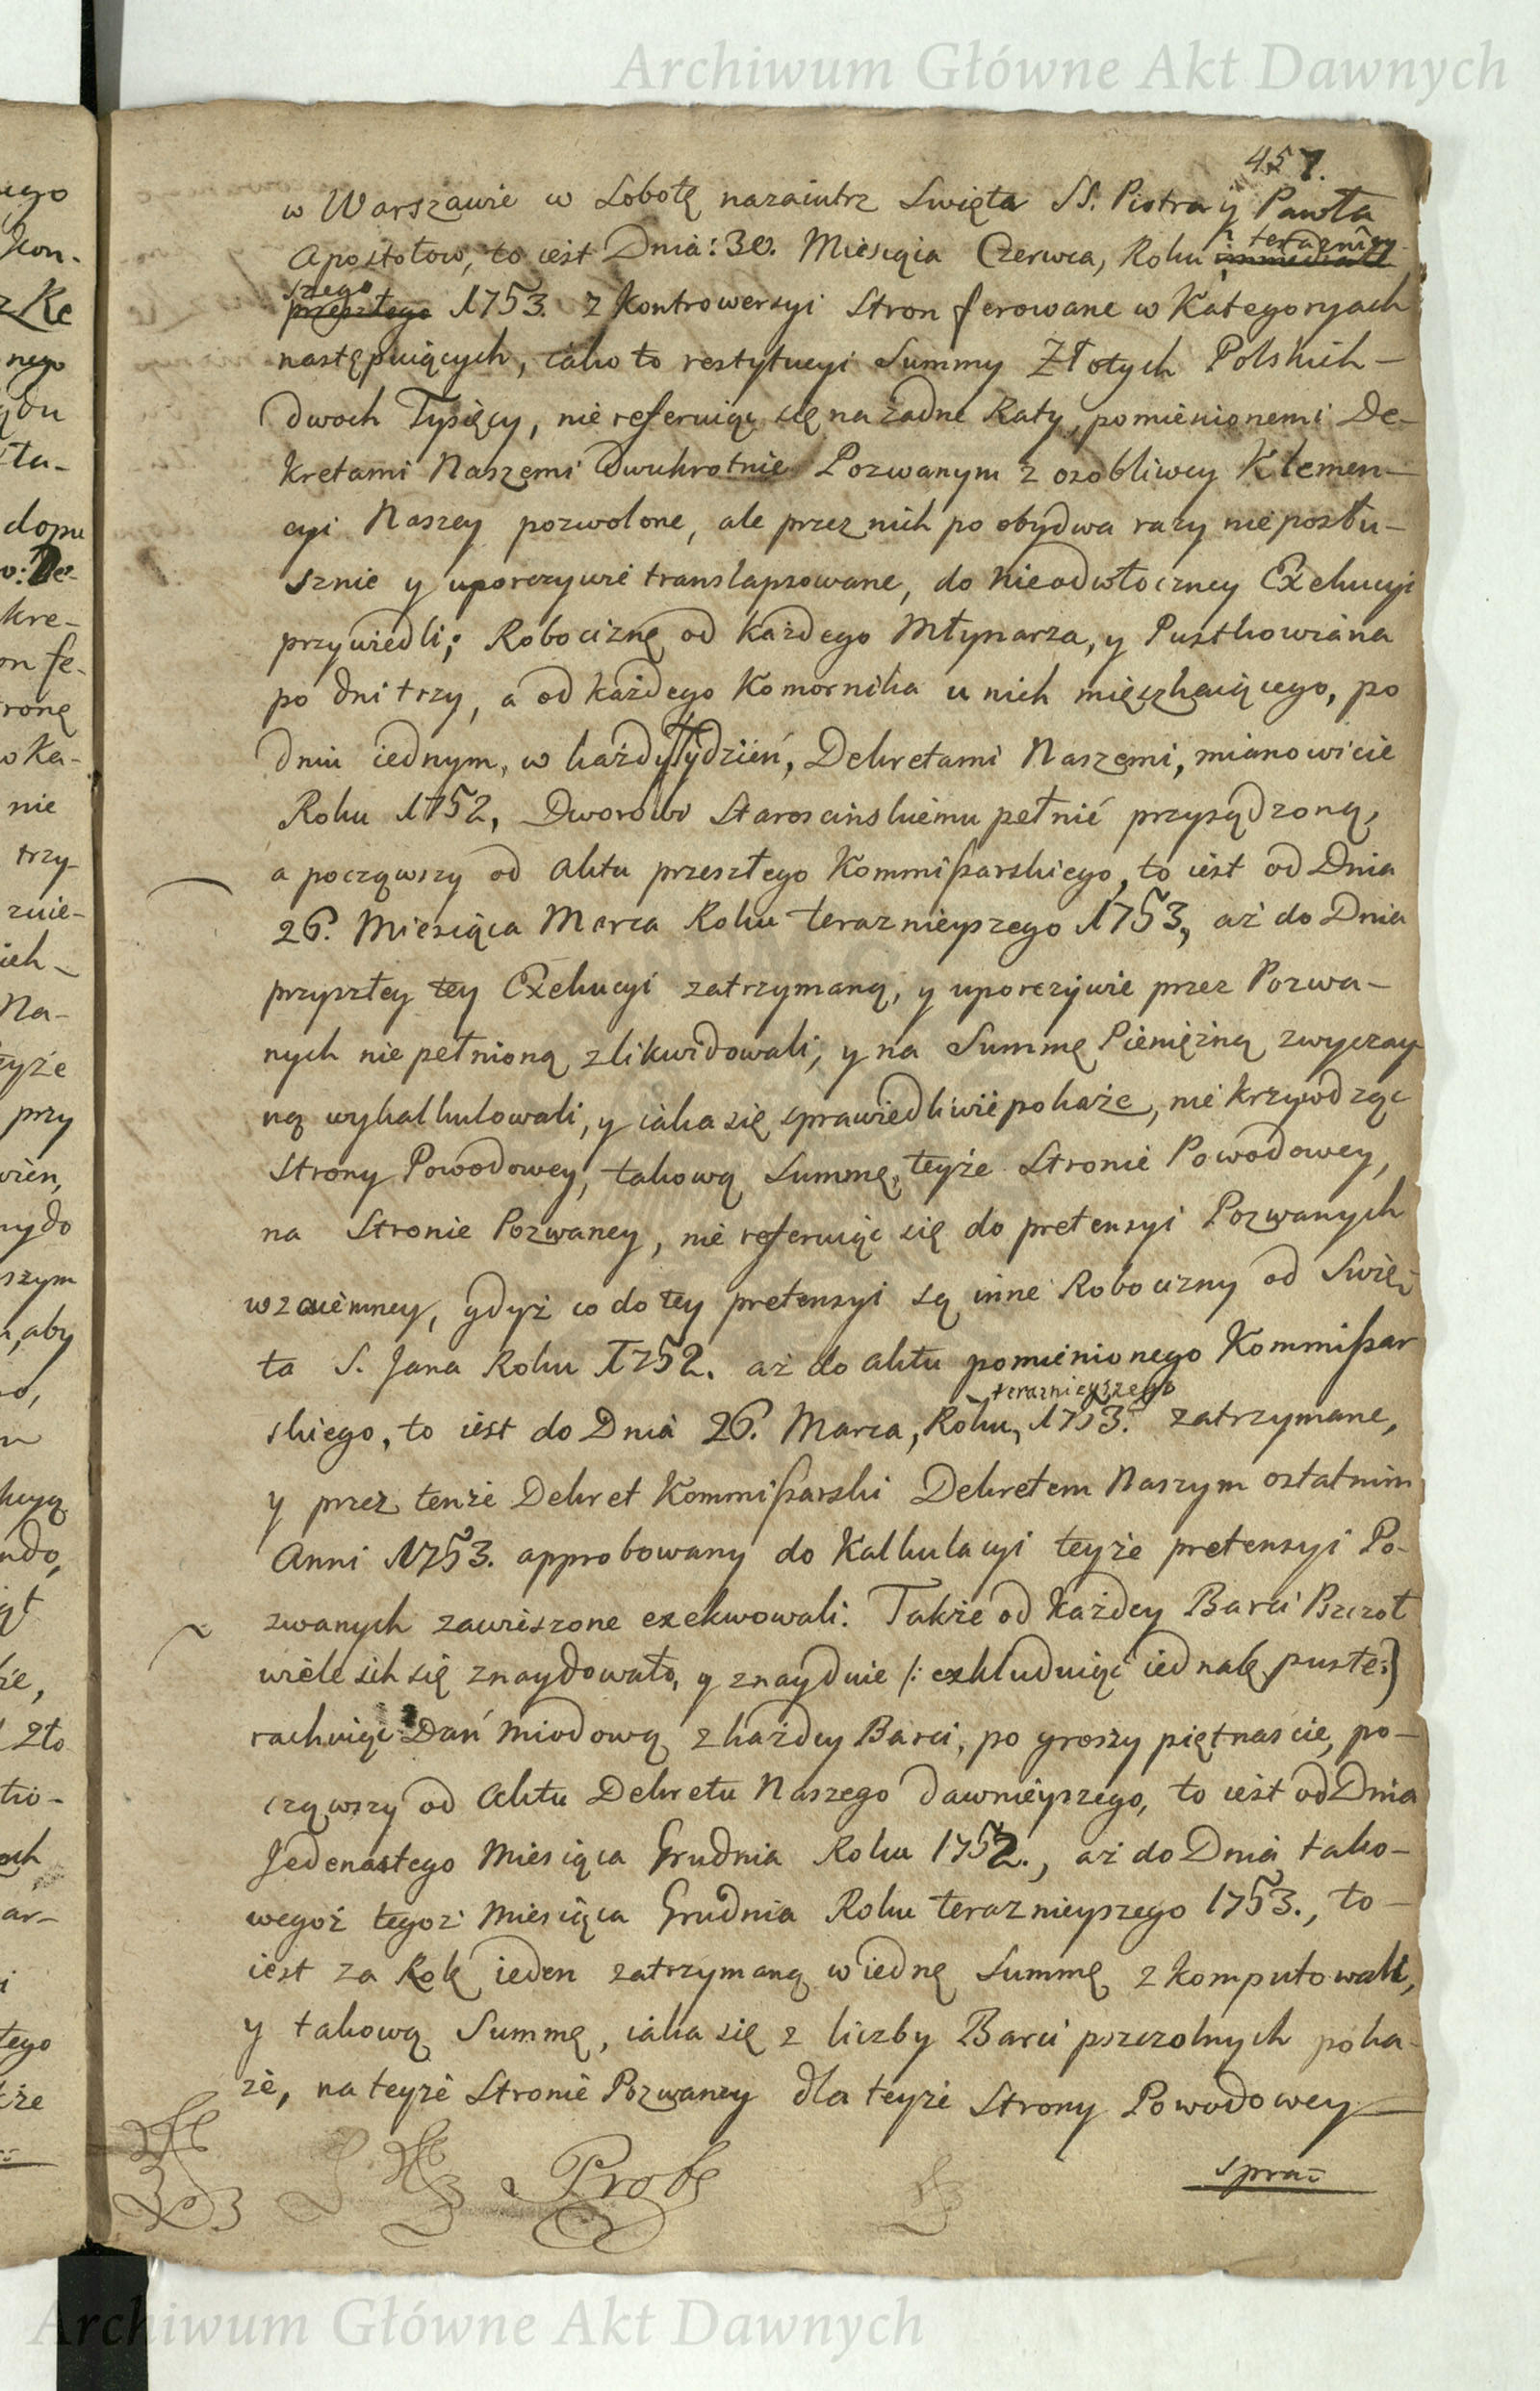 Archiwum Główne Akt Dawnych
457.
w Warszawie w Sobotę nazaiutrz Swięta SS. Piotra y Pawła
Apostołow, to iest Dnia: 30. Miesiąca Czerwca, Roku immediate terazniey-
szego przeszłego 1753. z Kontrowersyi Stron ferowane w Kategoryach
następuiących, iako to restytucyi Summy Złotych Polskich
dwoch Tysięcy, nie referuiąc się na żadne Raty, pomienionemi De-
kretami Naszemi dwukrotnie Pozwanym z osobliwey Klemen-
cyi Naszey pozwolone, ale przez nich po obydwa razy nieposłu-
sznie y uporczywie translapsowane, do nieodwłoczney Exekucyi
przywiedli; Robociznę od każdego Młynarza, y Pustkowiana
po dni trzy, a od każdego Komornika u nich mięszkaiącego, po
dniu iednym, w każdy Tydzień, Dekretami Naszemi, mianowicie
Roku 1752, Dworowi Staroscinskiemu pełnić przysądzoną,
a począwszy od Aktu przeszłego Kommißarskiego, to iest od Dnia
26. Miesiąca Marca Roku teraznieyszego 1753, aż do Dnia
przyszłey tey Exekucyi zatrzymaną, y uporczywie przez Pozwa-
nych nie pełnioną zlikwidowali, y na Summę Pieniężną zwyczay
ną wykalkulowali, y iaka się sprawiedliwie pokaże, nie krzywdząc
Strony Powodowey, takową Summę, teyże Stronie Powodowey,
na Stronie Pozwaney, nie referuiąc się do pretensyi Pozwanych
wzaiemney, gdyż co do tey pretensyi są inne Robocizny od Swię-
ta S. Jana Roku 1752. aż do Aktu pomienionego Kommißar
skiego, to iest do Dnia 26. Marca, Roku, teraznieyszego 1753. zatrzymane,
y przez tenże Dekret Kommißarski Dekretem Naszym ostatnim
Anni 1753. approbowany do Kalkulacyi teyże pretensyi Po-
zwanych zawieszone exekwowali. Także od każdey Barci Pszczoł
wiele ich się znaydowało, y znayduie /: exkluduiąc iednak puste :)
rachuiąc Dań Miodową z każdey Barci, po groszy piętnascie, po-
cząwszy od Aktu Dekretu Naszego dawnieyszego, to iest od Dnia
Jedenastego Miesiąca Grudnia Roku 1752., aż do Dnia tako-
wegoż tegoż Miesiąca Grudnia Roku teraznieyszego 1753., to
iest za Rok ieden zatrzymaną w iednę Summę zkomputowali,
y takową Summę, iaka się z liczby Barci pszczolnych poka-
że, na teyże Stronie Pozwaney dla teyże Strony Powodowey
spra-
Archiwum Główne Akt Dawnych